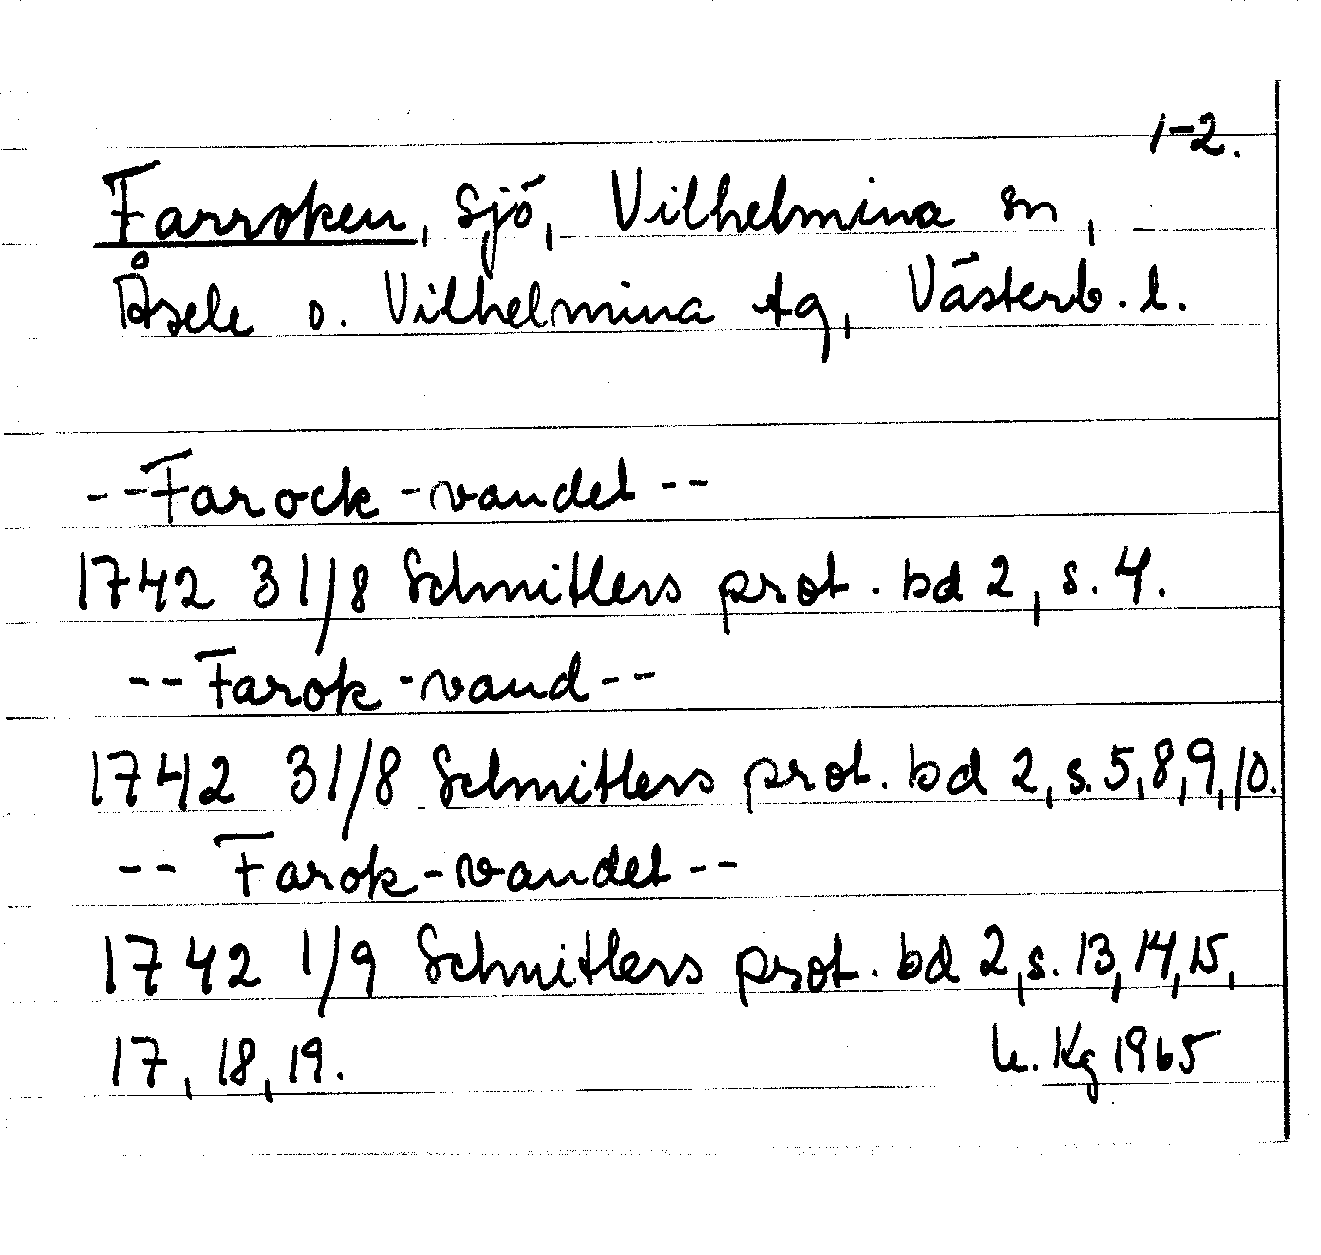 1-2.
Farroken, sjö, Vilhelmina sn,
Åsele o. Vilhelmina tg, Västerb. l.
--Farock-vandet--
1742 31/8 Schnitlers prot. bd 2, s. 4.
--Farok-vand--
1742 31/8 Schnitlers prot. bd 2, s. 5, 8, 9, 10.
-- Farok-vandet--
1742 1/9 Schnitlers prot. bd 2, s. 13, 14, 15,
17, 18, 19. U. Kg 1965